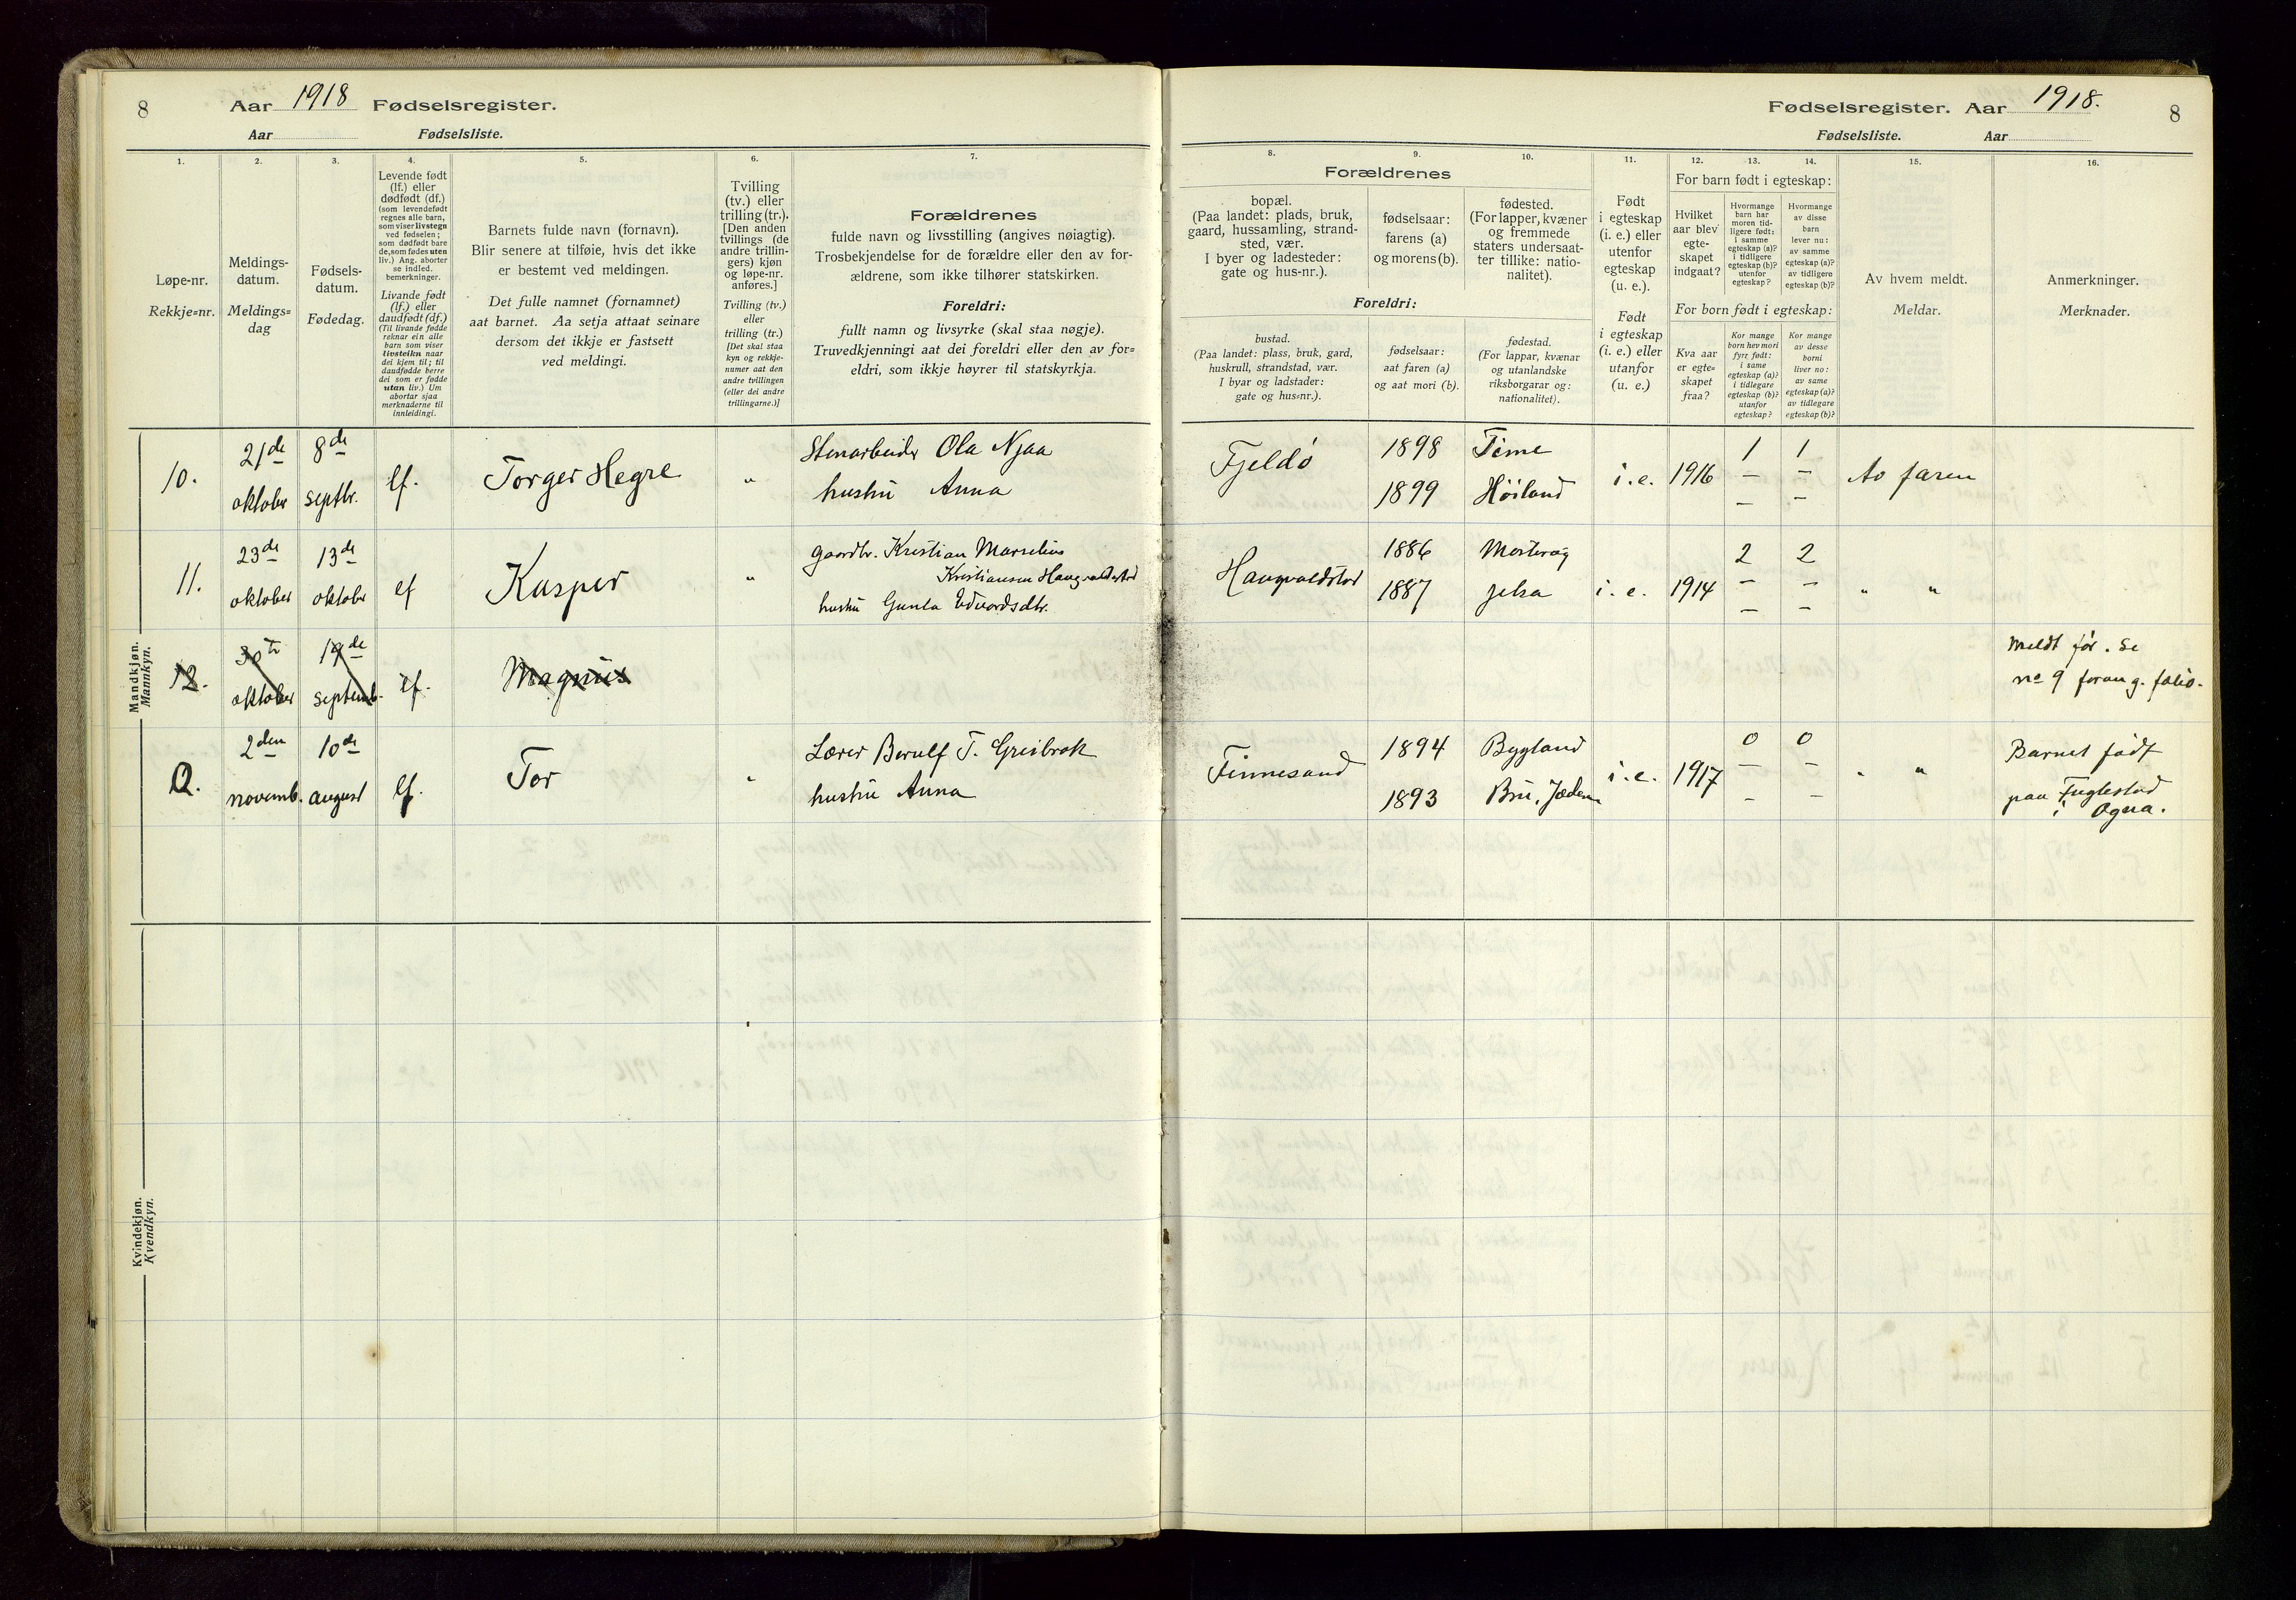 8
Aar 1918 Fødselsregister.
Aar Fødselsliste.
1.
2.
3.
4.
5.
6.
7.
Løpe-nr.
Rekkje=nr.
Meldings-
datum.
Meldings=
dag
Fødsels-
datum.
Fødedag.
Levende født
(lf.) eller
dødfødt (df.)
(som levendefødt
regnes alle barn,
som viser livstegn
ved fødselen;
som dødfødt bare
de, som fødes uten
liv.) Ang. aborter
se indled.
bemerkninger.
Livande født
(lf.) eller
daudfødt (df.)
(Til livande fødde
reknar ein alle
barn som viser
livsteikn naar
dei kjem til; til
daudfødde berre
dei som er fødde
utan liv.) Um
abortar sjaa
merknaderne til
innleidingi.
Barnets fulde navn (fornavn).
Blir senere at tilføie, hvis det ikke
er bestemt ved meldingen.
Det fulle namnet (fornamnet)
aat barnet. Aa setja attaat seinare
dersom det ikkje er fastsett
ved meldingi.
Tvilling
(tv.) eller
trilling (tr.).
[Den anden
tvillings (de
andre trillin-
gers) kjøn
og løpe-nr.
anføres.]
Tvilling (tv.)
eller
trilling (tr.)
[Det skal staa
kyn og rekkje-
numer aat den
andre tvillingen
(eller dei andre
trillingarne.)]
Forældrenes
fulde navn og livsstilling (angives nøiagtig).
Trosbekjendelse for de forældre eller den av for-
ældrene, som ikke tilhører statskirken.
Foreldri:
fullt namn og livsyrke (skal staa nøgje).
Truvedkjenningi aat dei foreldri eller den av for=
eldri, som ikkje høyrer til statskyrkja.
Mandkjøn.
Mannkyn.
10.
21de
oktober
8de
septbr.
lf.
Torger Hegre
"
Stenarbeider Ola Njaa
hustru Anna
11.
23de
oktober
13de
oktober
lf
Kasper
"
Gaardbr. Kristian Marselius
Kristiansen Haugvaldstad
hustru Gunla Edvardsdtr.
12.
30te
oktober
19de
septemb.
lf.
Magnus
2den
novemb.
10de
august
lf.
Tor
"
Lærer Berulf T. Greibrok
hustru Anna
Kvindekjøn.
Kvendkyn.
Fødselsregister. Aar 1918.
8
Fødselsliste. Aar
8.
9.
10.
11.
12.
13.
14.
15.
16.
Forældrenes
bopæl.
(Paa landet: plads, bruk,
gaard, hussamling, strand-
sted, vær.
I byer og ladesteder:
gate og hus-nr.).
fødselsaar:
farens (a)
og morens (b).
fødested.
(For lapper, kvæner
og fremmede
staters undersaat-
ter tillike: natio-
nalitet).
Foreldri:
bustad.
(Paa landet: plass, bruk, gard,
huskrull, strandstad, vær.
I byar og ladstader:
gate og hus=nr.).
fødselsaar:
aat faren (a)
og aat mori (b).
fødestad.
(For lappar, kvænar
og utanlandske
riksborgarar og:
nationalitet).
Født
i egteskap
(i. e.) eller
utenfor
egteskap
(u. e.).
Født
i egteskap
(i. e.) eller
utanfor
(u. e.).
For barn født i egteskap:
Hvilket
aar blev
egte-
skapet
indgaat?
Hvormange
barn har
moren tid-
ligere født:
i samme
egteskap (a)?
i tidligere
egteskap (b)?
utenfor
egteskap?
Hvormange
av disse
barn
lever nu:
av samme
egteskap (a)?
av tidligere
egteskap (b)?
For born født i egteskap:
Kva aar
er egte=
skapet
fraa?
Kor mange
born hev mori
fyrr født:
i same
egteskap (a)?
i tidlegare
egteskap (b)?
utanfor
egteskap?
Kor mange
av desse
borni
liver no:
av same
egteskap (a)?
av tidlegare
egteskap (b)?
Av hvem meldt.
Meldar.
Anmerkninger.
Merknader.
Fjeldø
1898
1899
Time
Höiland
i. e.
1916
1 1
– –
– –
Av faren
Haugvaldstad
1886
1887
Mosterøy
Jelsa
i. e.
1914
2 2
– –
– –
" "
Meldt før. Se
no 9 forang. folio.
Finnesand
1894
1893
Bygland
Bru, Jæderen
i. e.
1917
0 0
– –
– –
" "
Barnet født
paa Fuglestad
i Ogna.